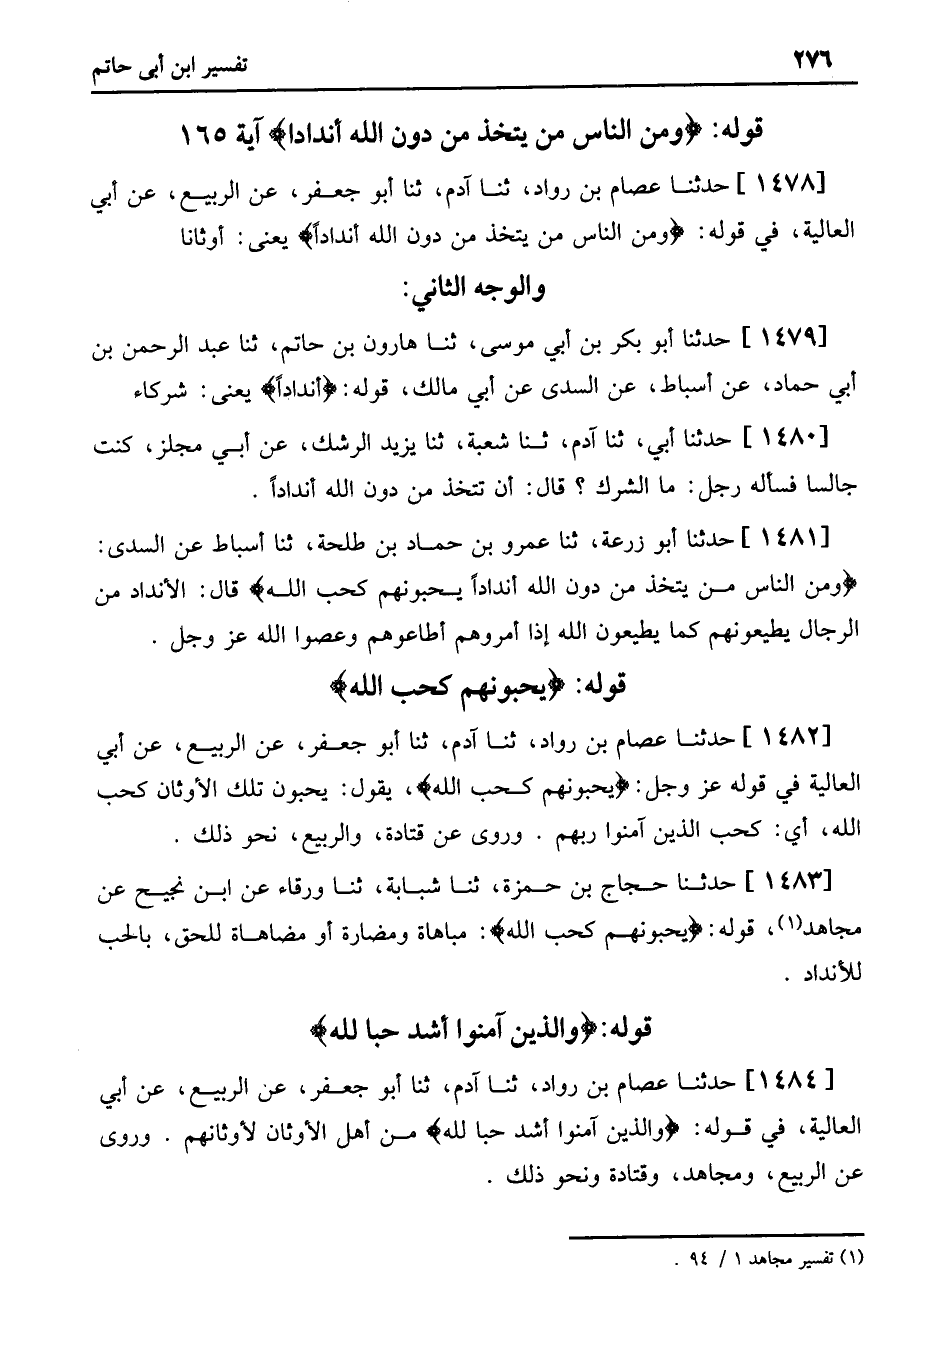 ٢٧٦
تفسير ابن أبى حاتم
قوله: ﴿ومن الناس من يتخذ من دون الله أندادا﴾ آية ١٦٥
[١٤٧٨] حدثنا عصام بن رواد، ثنا آدم، ثنا أبو جعفر، عن الربيع، عن أبي
العالية، في قوله: ﴿ومن الناس من يتخذ من دون الله أنداداً﴾ يعنى: أوثانا
والوجه الثاني:
[١٤٧٩] حدثنا أبو بكر بن أبي موسى، ثنا هارون بن حاتم، ثنا عبد الرحمن بن
أبي حماد، عن أسباط، عن السدى عن أبي مالك، قوله: ﴿أنداداً﴾ يعنى: شركاء
[١٤٨٠] حدثنا أبي، ثنا آدم، ثنا شعبة، ثنا يزيد الرشك، عن أبي مجلز، كنت
جالسا فسأله رجل: ما الشرك ؟ قال: أن تتخذ من دون الله أنداداً .
[١٤٨١] حدثنا أبو زرعة، ثنا عمرو بن حماد بن طلحة، ثنا أسباط عن السدى:
﴿ومن الناس من يتخذ من دون الله أنداداً يحبونهم كحب الله﴾ قال: الأنداد من
الرجال يطيعونهم كما يطيعون الله إذا أمروهم أطاعوهم وعصوا الله عز وجل .
قوله: ﴿يحبونهم كحب الله﴾
[١٤٨٢] حدثنا عصام بن رواد، ثنا آدم، ثنا أبو جعفر، عن الربيع، عن أبي
العالية في قوله عز وجل: ﴿يحبونهم كحب الله﴾، يقول: يحبون تلك الأوثان كحب
الله، أي: كحب الذين آمنوا ربهم . وروى عن قتادة، والربيع، نحو ذلك .
[١٤٨٣] حدثنا حجاج بن حمزة، ثنا شبابة، ثنا ورقاء عن ابن نجيح عن
مجاهد(١)، قوله: ﴿يحبونهم كحب الله﴾: مباهاة ومضارة أو مضاهاة للحق، بالحب
للأنداد .
قوله: ﴿والذين آمنوا أشد حبا لله﴾
[١٤٨٤] حدثنا عصام بن رواد، ثنا آدم، ثنا أبو جعفر، عن الربيع، عن أبي
العالية، في قوله: ﴿والذين آمنوا أشد حبا لله﴾ من أهل الأوثان لأوثانهم . وروى
عن الربيع، ومجاهد، وقتادة ونحو ذلك .
(١) تفسير مجاهد ١ / ٩٤ .